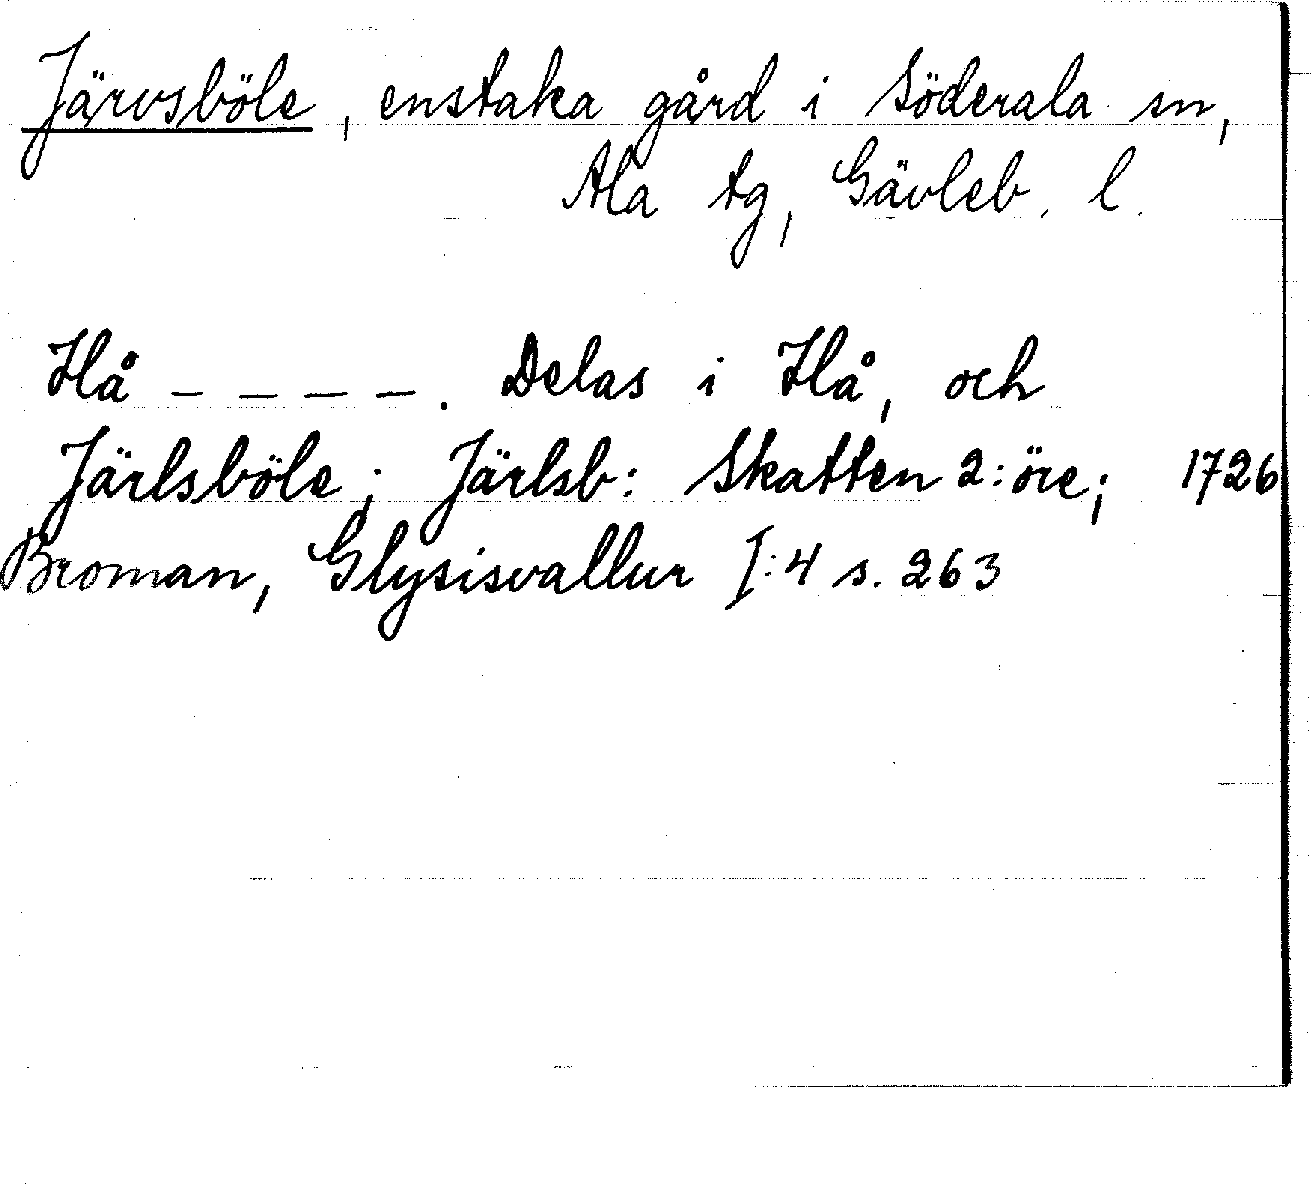 Järvsböle, enstaka gård i Söderala sn,
Ala tg, Gävleb. l.
Hå _ _ _ _ . Delas i Hå, och
Järlsböle; Järlsb: Skatten 2:öre; 1726
Broman, Glysisvallur I:4 s. 263